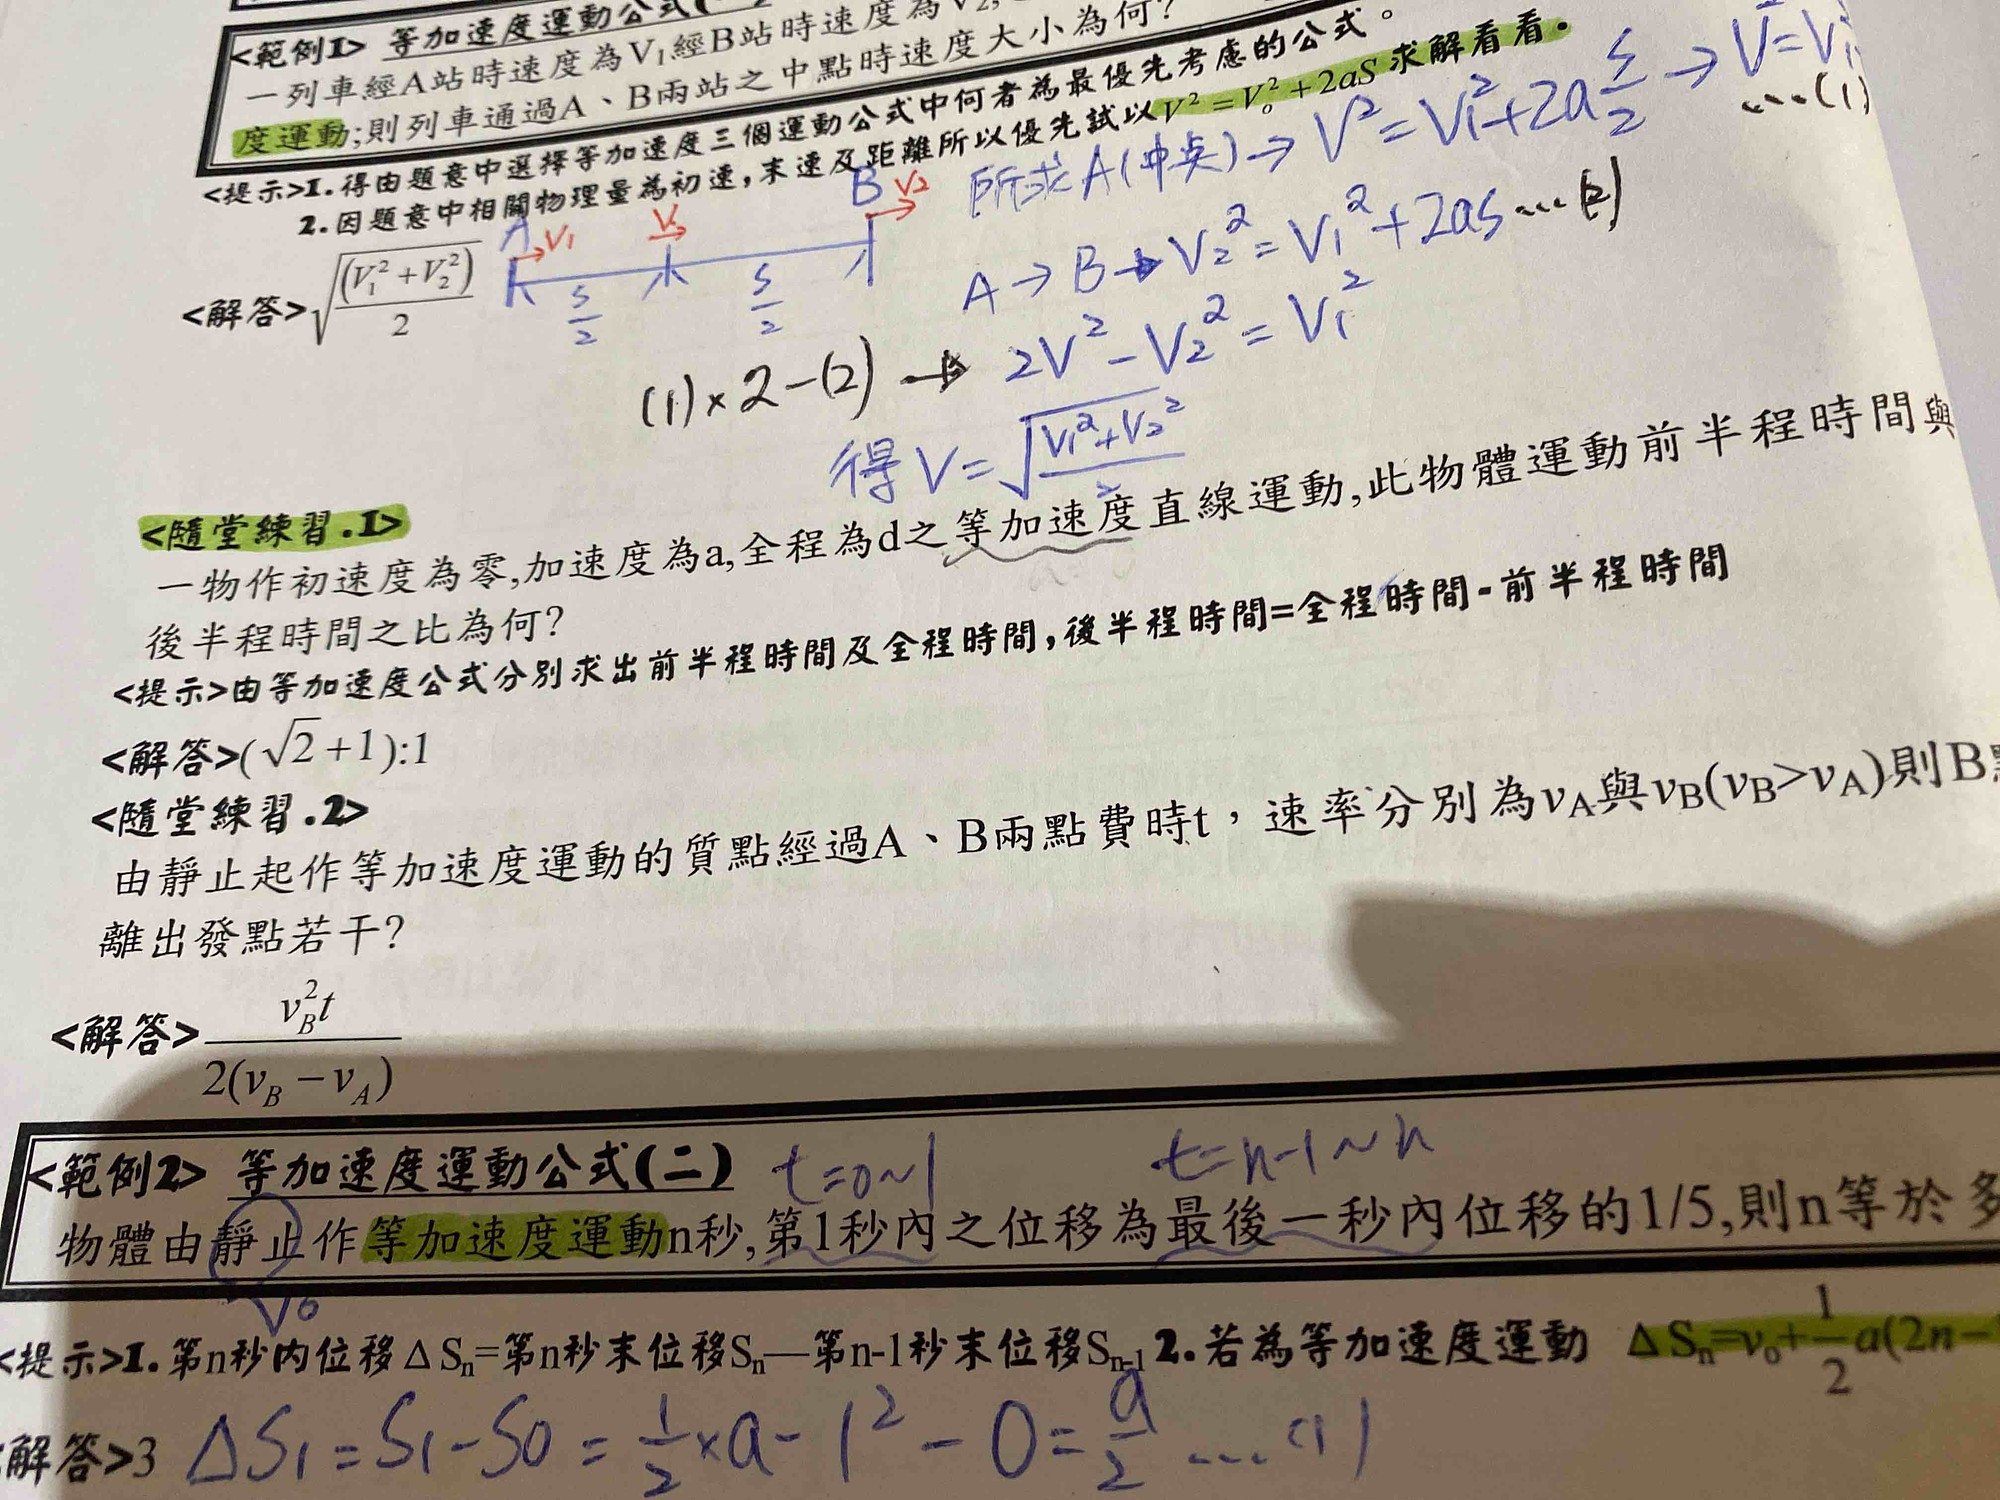 <範例1> 等加速度運動公式(
一列車經A站時速度為V₁經B站時速度為V₂,
度運動;則列車通過A、B兩站之中點時速度大小為何?
<提示>1.得由題意中選擇等加速度三個運動公式中何者為最優先考慮的公式。
2.因題意中相關物理量為初速,末速及距離所以優先試以V²=V₀²+2aS求解看看。
所求A(中央)→V²=V₁²+2a S/2 → V=V₁
...(1)
A V₁ V B V₂
S/2 S/2
A→B→V₂²=V₁²+2as...(2)
<解答>√((V₁²+V₂²)/2)
(1)×2-(2) → 2V²-V₂²=V₁²
得V=√((V₁²+V₂²)/2)
<隨堂練習.1>
一物作初速度為零,加速度為a,全程為d之等加速度直線運動,此物體運動前半程時間與
後半程時間之比為何?
<提示>由等加速度公式分別求出前半程時間及全程時間,後半程時間=全程時間-前半程時間
<解答>(√2+1):1
<隨堂練習.2>
由靜止起作等加速度運動的質點經過A、B兩點費時t,速率分別為vA與vB(vB>vA)則B
離出發點若干?
<解答> vB²t/2(vB-vA)
<範例2> 等加速度運動公式(二) t=0~1 t=n-1~n
物體由靜止作等加速度運動n秒,第1秒內之位移為最後一秒內位移的1/5,則n等於多
V₀
<提示>1.第n秒內位移ΔSn=第n秒末位移Sn—第n-1秒末位移Sn-1 2.若為等加速度運動 ΔSn=v₀+1/2a(2n-
解答>3 ΔS₁=S₁-S0=1/2×a-1²-0=a/2...(1)